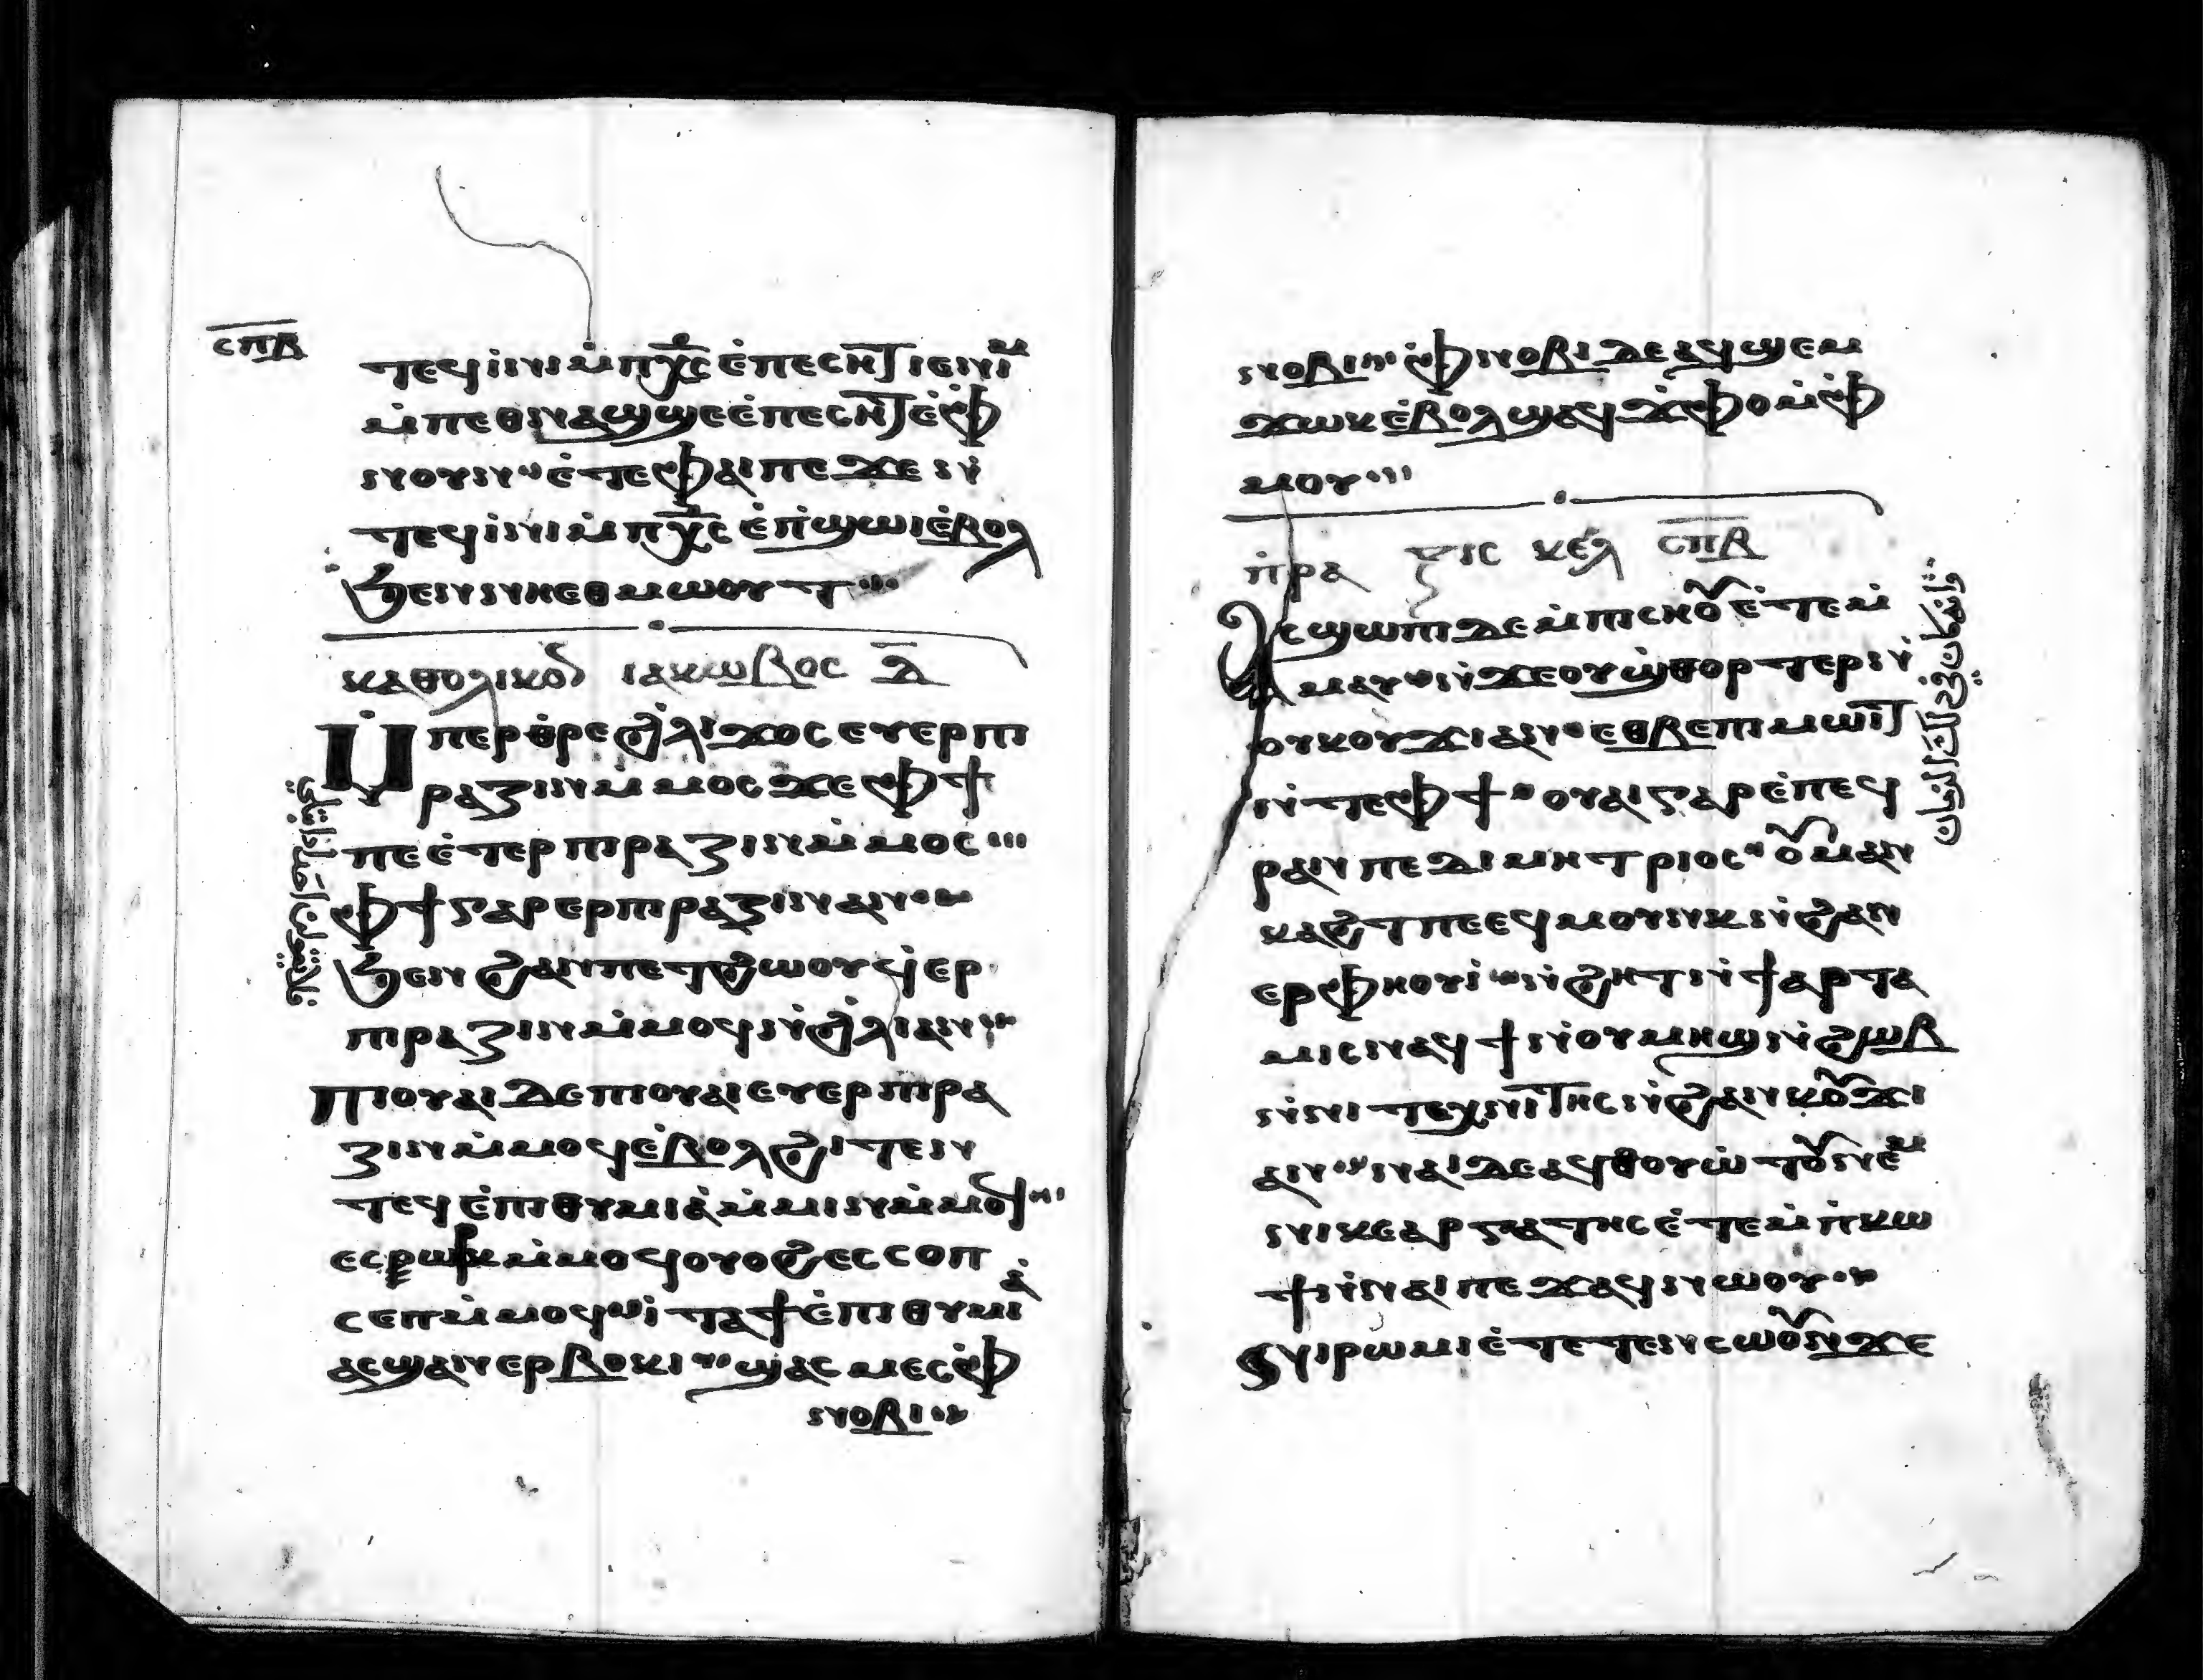 ⲥⲡⲃ
ⲧⲉϥⲓⲛⲓⲙ̀ⲡⲭ̅ⲥ̅ⲉ̀ⲡⲉⲥⲏⲧⲓⲉⲛⲓⲙ
ⲙ̀ⲡⲉⲑⲛⲁϣϣⲉⲉ̀ⲡⲉⲥⲏⲧⲉ̀ⲫ
ⲛⲟⲩⲛ ⲉ̀ⲧⲉⲫⲁⲓⲡⲉϫⲉⲛ̀
ⲧⲉϥⲓⲛⲓⲙ̀ⲡⲭ̅ⲥ̅ⲉ̀ⲡϣⲱⲓⲉ̀ⲃⲟⲗ
ϧⲉⲛⲛⲏⲉⲑⲙⲱⲟⲩⲧ
ⲕⲁⲑⲟⲗⲓⲕⲟⲛ ⲓⲁⲕⲱⲃⲟⲥ ⲁ̅
Ⲙ̀ⲡⲉⲣⲑ̀ⲣⲉϩ̀ⲗⲓϫⲟⲥⲉⲩⲉⲣⲡⲓ
ⲣⲁⲍⲓⲛⲙ̀ⲙⲟⲥϫⲉⲫϯ
ⲡⲉⲉ̀ⲧⲉⲣⲡⲓⲣⲁⲍⲓⲛⲙ̀ⲙⲟⲥ
ⲫϯⲅⲁⲣⲉⲣⲡⲓⲣⲁⲍⲓⲛⲁⲛ
ϧⲉⲛϩⲁⲛⲡⲉⲧϩⲱⲟⲩϥ̀ⲉⲣ
ⲡⲓⲣⲁⲍⲓⲛⲙ̀ⲙⲟϥⲛ̀ϩ̀ⲗⲓⲁⲛ
ⲡⲓⲟⲩⲁⲓⲇⲉⲡⲓⲟⲩⲁⲓⲉⲩⲉⲣⲡⲓⲣⲁ
ⲍⲓⲛⲙ̀ⲙⲟϥⲉ̀ⲃⲟⲗϩⲓⲧⲉⲛ
ⲧⲉϥⲉ̀ⲡⲓⲑⲩⲙⲓⲁ̀ⲙ̀ⲙⲓⲛⲙ̀ⲙⲟϥ
ⲉⲥⲣⲱⲕⲙ̀ⲙⲟϥⲟⲩⲟϩⲉⲥⲥⲟⲡ
ⲥⲉⲡⲙ̀ⲙⲟϥ ⲓ̀ⲧⲁϯⲉ̀ⲡⲓⲑⲩⲙⲓⲁ̀
ⲁⲥϣⲁⲛⲉⲣⲃⲟⲕⲓ ϣⲁⲥⲙⲉⲥⲫ̀
ⲛⲟⲃⲓ
فلا يقولن احد اذا ابتلي
ⲛⲟⲃⲓ ⲫ̀ⲛⲟⲃⲓⲇⲉⲁϥϣⲉⲙ
ϫⲱⲕⲉ̀ⲃⲟⲗϣⲁϥϫ̀ⲫⲟⲙ̀ⲫ̀
ⲙⲟⲩ
ⲡ̀ⲣⲁⲝⲓⲥ ⲕⲉⲫⲗ ⲥⲡⲃ
Ⲁⲥϣⲱⲡⲓⲇⲉⲙ̀ⲡⲓⲥⲏⲟⲩⲉ̀ⲧⲉⲙ
ⲙⲁⲩ ⲛ̀ϫⲉⲟⲩϣⲑⲟⲣⲧⲉⲣⲛ̀
ⲟⲩⲕⲟⲩϫⲓⲁⲛ ⲉⲑⲃⲉⲡⲓⲙⲱⲓⲧ
ⲛ̀ⲧⲉⲫϯ ⲟⲩⲁⲓⲅⲁⲣⲉ̀ⲡⲉϥ
ⲣⲁⲛⲡⲉⲇⲓⲙⲏⲧⲣⲓⲟⲥ ⲟⲩⲙⲁⲛ
ⲕⲁϩⲧⲡⲉⲉϥⲙⲟⲩⲛⲕⲛ̀ϩⲁⲛ
ⲉⲣⲫⲏⲟⲩⲓ̀ ⲛ̀ϩⲏⲧⲛ̀ϯⲁⲣⲧⲁ
ⲙⲓⲥⲛⲁϥϯⲛ̀ⲟⲩⲙⲏϣⲛ̀ϩⲱⲃ
ⲛ̀ⲛⲓⲧⲉⲭⲛⲓⲧⲏⲥⲛ̀ϩⲁⲛⲕⲟⲩϫⲓ
ⲁⲛ ⲛⲁⲓⲇⲉⲁϥⲑⲟⲩⲱⲧⲟⲩⲛⲉⲙ
ⲛⲓⲕⲉⲁⲣⲅⲁⲧⲏⲥⲉ̀ⲧⲉⲙ̀ⲡ̀ⲕⲱ
ϯⲛ̀ⲛⲁⲓⲡⲉϫⲁϥⲛⲱⲟⲩ
Ⲛⲓⲣⲱⲙⲓⲉ̀ⲧⲉⲧⲉⲛⲥⲱⲟⲩⲛϫⲉ
وانه كان في ذلك الزمان